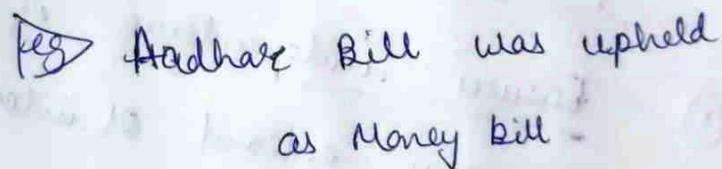 eg Aadhar Bill was upheld
as Money bill -